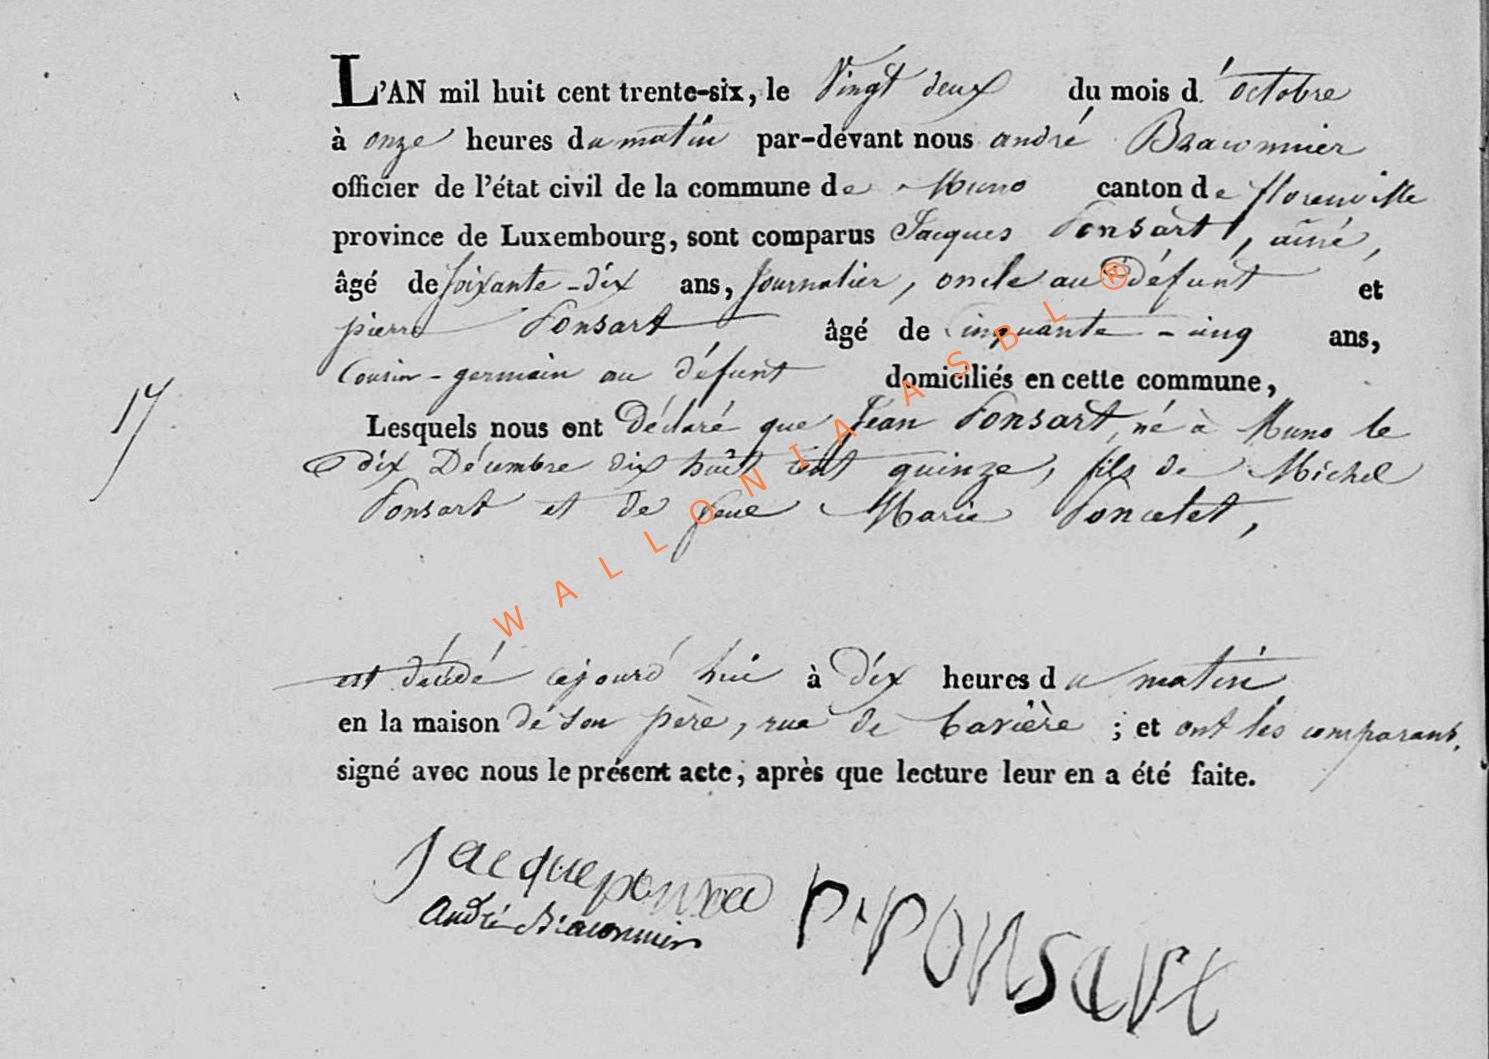 L'AN mil huit cent trente-six, le Vingt deux du mois d'octobre
à onze heures du matin par-devant nous andré Braconnier
officier de l'état civil de la commune de Muno canton de florenville
province de Luxembourg, sont comparus Jacques Ponsart, aîné,
âgé de soixante-dix ans, Journalier, oncle au défunt et
pierre Ponsart âgé de cinquante-cinq ans,
Cousin-germain au défunt domiciliés en cette commune,
17
Lesquels nous ont Déclaré que Jean Ponsart, né à Muno le
dix Décembre dix huit cent quinze, fils de Michel
Ponsart et de feue Marie Poncelet,
est décédé cejourd'hui à Dix heures du matin
en la maison de son père, rue de bavière ; et ont les comparans,
signé avec nous le présent acte, après que lecture leur en a été faite.
Jacque ponsa
André Braconnier
P. PONSART
WALLONIA ASBL ®